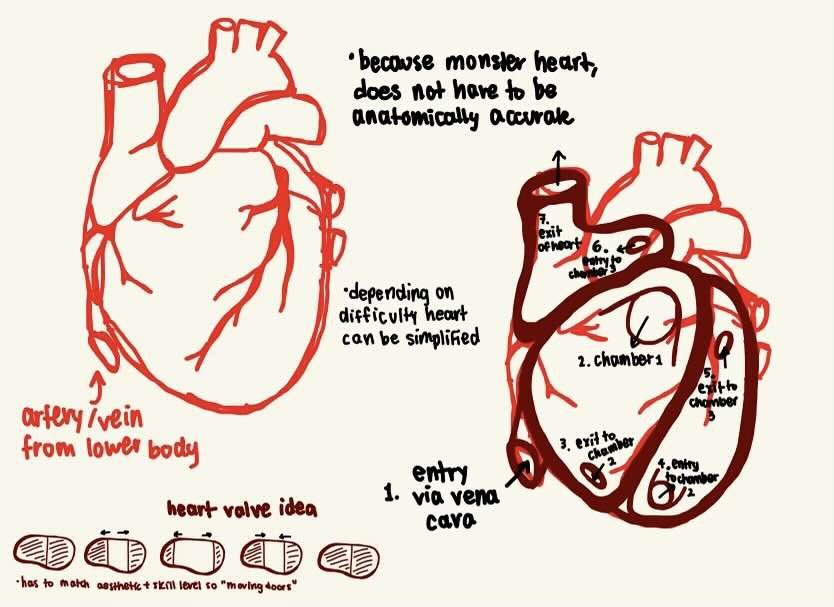 ·because monster heart,
does not have to be
anatomically accurate
·depending on
difficulty heart
can be simplified
artery/vein
from lower body
7.
exit
of heart
6.
entry to
chamber 3
2. chamber 1
5.
exit to
chamber
3
3. exit to
chamber
2
4. entry
to chamber
2
entry
1. via vena
cava
heart valve idea
·has to match aesthetic + skill level so "moving doors"